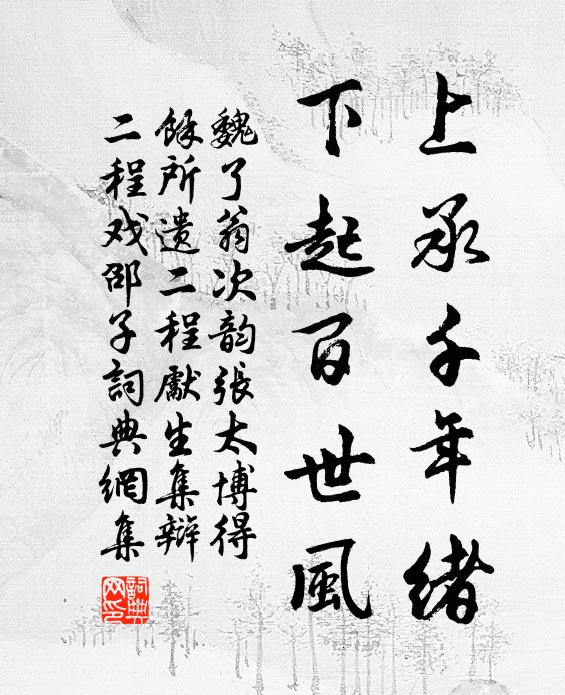 上承千年緒
下起百世風
魏了翁次韵張太博得
餘所遗二程獻生集辯
二程戏邵子詞典網集
詞典网印